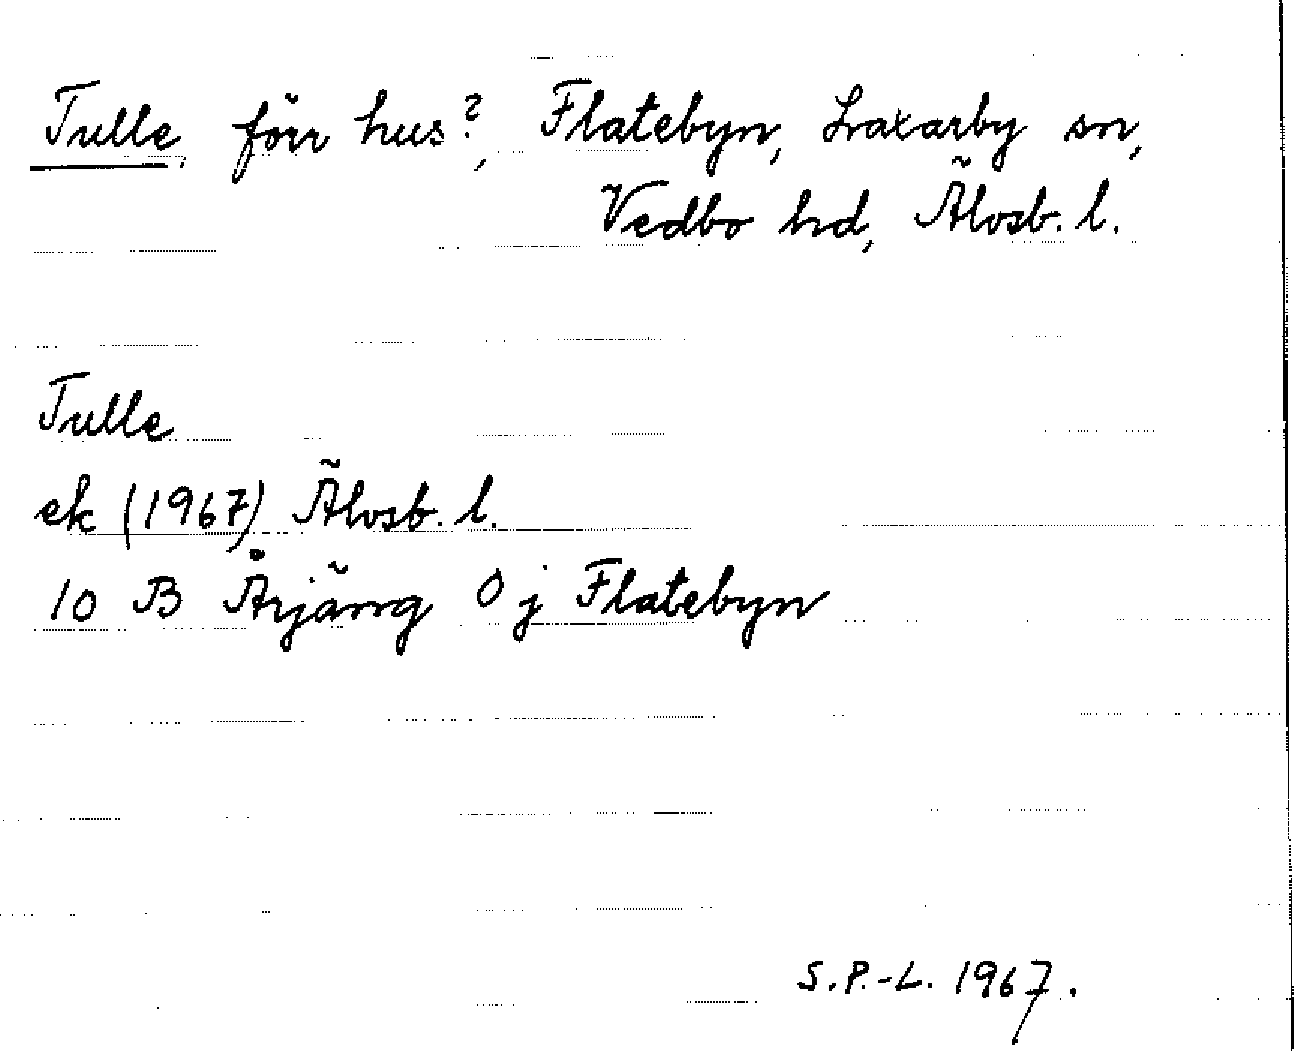 Tulle, förr hus?, Flatebyn, Laxarby sn,
Vedbo hd, Älvsb. l.
Tulle
ek (1967) Älvsb. l.
10 B Årjäng 0 j Flatebyn
S.P.-L. 1967.